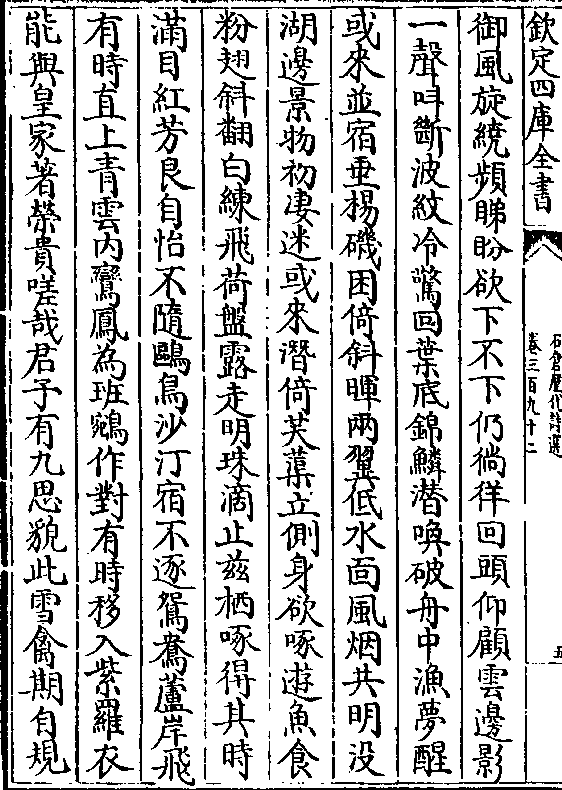 欽定四庫全書
石倉歷代詩選
卷三百九十二
五
御風旋繞頻睇盼欲下不下仍徜徉回頭仰顧雲邊影
一聲呌斷波紋冷驚回葉底錦鱗潛喚破舟中漁夢醒
或來並宿垂楊磯困倚斜暉兩翼低水面風烟共明没
湖邊景物初凄迷或來潛倚芙蕖立側身欲啄遊魚食
粉翅斜翻白練飛荷盤露走明珠滴止兹栖啄得其時
滿目紅芳良自怡不隨鷗鳥沙汀宿不逐鴛鴦蘆岸飛
有時直上青雲内鸞鳳為班鵷作對有時移入紫羅衣
能與皇家著榮貴嗟哉君子有九思貌此雪禽期自規